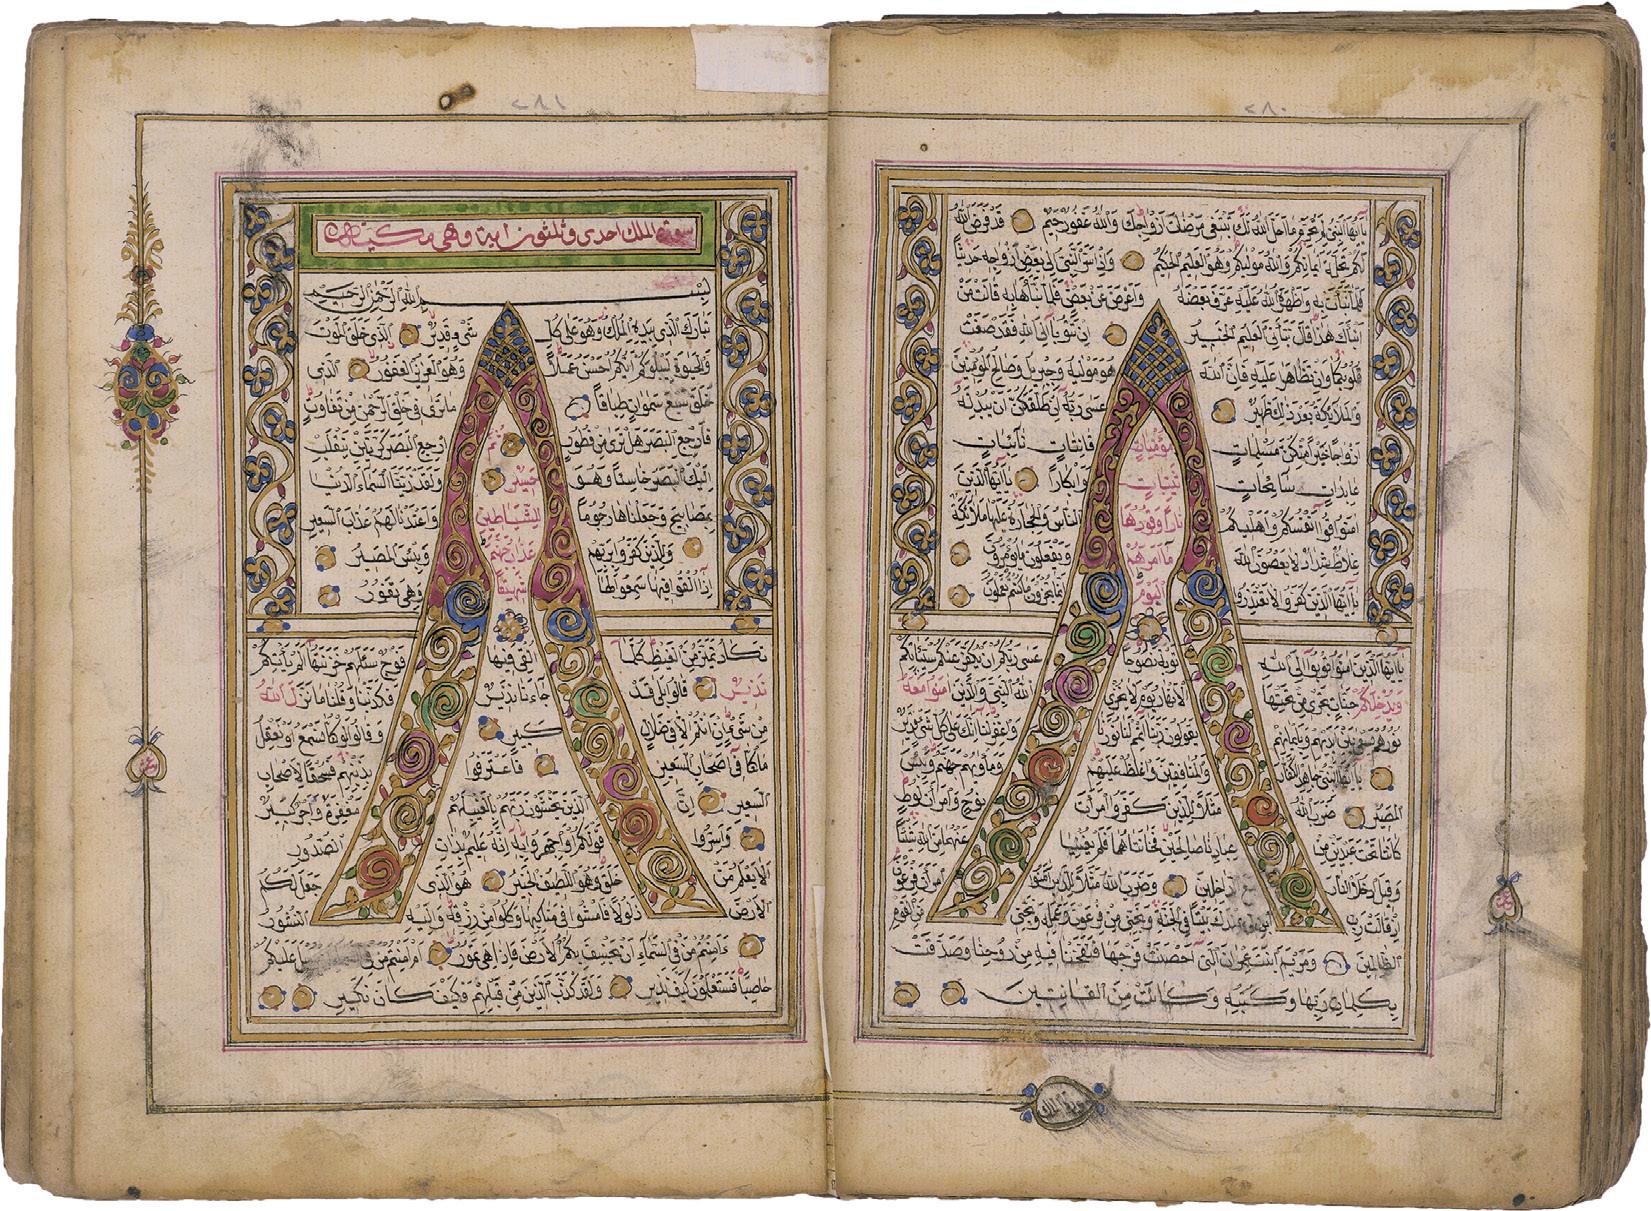 ٢٨٠
يا أيها النبي لم تحرم ما أحل الله لك تبتغي مرضات أزواجك والله غفور رحيم قد فرض الله
لكم تحلة أيمانكم والله موليكم وهو العليم الحكيم وإذ أسر النبي إلى بعض أزواجه حديثا
فلما نبأت به وأظهره الله عليه عرف بعضه وأعرض عن بعض فلما نبأها به قالت من
أنبأك هذا قال نبأني العليم الخبير إن تتوبا إلى الله فقد صغت
قلوبكما وإن تظاهرا عليه فإن الله هو موليه وجبريل وصالح المؤمنين
والملائكة بعد ذلك ظهير عسى ربه إن طلقكن أن يبدله
أزواجا خيرا منكن مسلمات مؤمنات قانتات تائبات
عابدات سائحات ثيبات وأبكارا يا أيها الذين
آمنوا قوا أنفسكم وأهليكم نارا وقودها الناس والحجارة عليها ملائكة
غلاظ شداد لا يعصون الله ما أمرهم ويفعلون ما يؤمرون
يا أيها الذين كفروا لا تعتذروا اليوم إنما تجزون ما كنتم تعملون
يا أيها الذين آمنوا توبوا إلى الله توبة نصوحا عسى ربكم أن يكفر عنكم سيئاتكم
ويدخلكم جنات تجري من تحتها الأنهار يوم لا يخزي الله النبي والذين آمنوا معه
نورهم يسعى بين أيديهم وبأيمانهم يقولون ربنا أتمم لنا نورنا واغفر لنا إنك على كل شيء قدير
يا أيها النبي جاهد الكفار والمنافقين واغلظ عليهم ومأواهم جهنم وبئس
المصير ضرب الله مثلا للذين كفروا امرأت نوح وامرأت لوط
كانتا تحت عبدين من عبادنا صالحين فخانتاهما فلم يغنيا عنهما من الله شيئا
وقيل ادخلا النار مع الداخلين وضرب الله مثلا للذين آمنوا امرأت فرعون
إذ قالت رب ابن لي عندك بيتا في الجنة ونجني من فرعون وعمله ونجني من القوم
الظالمين ومريم ابنت عمران التي أحصنت فرجها فنفخنا فيه من روحنا وصدقت
بكلمات ربها وكتبه وكانت من القانتين
عشر
سورة الملك
٢٨١
سورة الملك احدى وثلثون اية وهي مكية
بسم الله الرحمن الرحيم
تبارك الذي بيده الملك وهو على كل شيء قدير الذي خلق الموت
والحيوة ليبلوكم أيكم أحسن عملا وهو العزيز الغفور الذي
خلق سبع سموات طباقا ما ترى في خلق الرحمن من تفاوت
فارجع البصر هل ترى من فطور ثم ارجع البصر كرتين ينقلب
إليك البصر خاسئا وهو حسير ولقد زينا السماء الدنيا
بمصابيح وجعلناها رجوما للشياطين وأعتدنا لهم عذاب السعير
وللذين كفروا بربهم عذاب جهنم وبئس المصير
إذا ألقوا فيها سمعوا لها شهيقا وهي تفور
تكاد تميز من الغيظ كلما ألقي فيها فوج سئلهم خزنتها ألم يأتكم
نذير قالوا بلى قد جاءنا نذير فكذبنا وقلنا ما نزل الله
من شيء إن أنتم إلا في ضلال كبير وقالوا لو كنا نسمع أو نعقل
ما كنا في أصحاب السعير فاعترفوا بذنبهم فسحقا لأصحاب
السعير إن الذين يخشون ربهم بالغيب لهم مغفرة وأجر كبير
وأسروا قولكم أو اجهروا به إنه عليم بذات الصدور
ألا يعلم من خلق وهو اللطيف الخبير هو الذي جعل لكم
الأرض ذلولا فامشوا في مناكبها وكلوا من رزقه وإليه النشور
ءامنتم من في السماء أن يخسف بكم الأرض فإذا هي تمور أم أمنتم من في السماء أن يرسل عليكم
حاصبا فستعلمون كيف نذير ولقد كذب الذين من قبلهم فكيف كان نكير
عشر